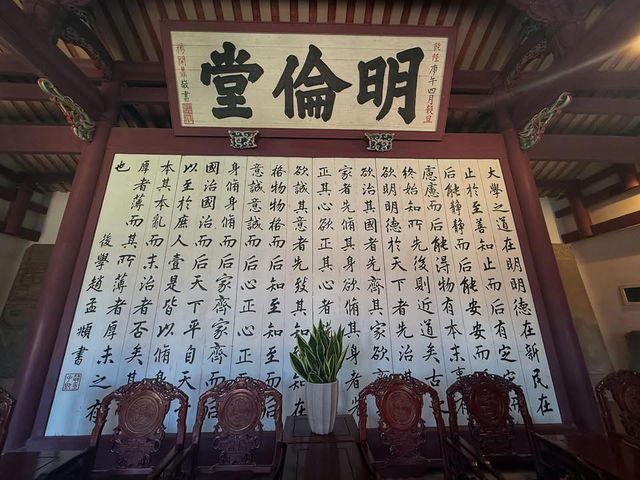 乾隆庚午四月榖旦
明倫堂
楊開鼎敬書
大學之道在明明德在新民在
止於至善知止而后有定定
后能靜靜而后能安安而
慮慮而后能得物有本末事
終始知所先後則近道矣古
欲明明德於天下者先治
欲治其國者先齊其家欲
家者先脩其身欲脩其身者
正其心欲正其心者
欲誠其意者先致其知在
格物物格而后知至知至
意誠意誠而后心正心正
身脩身脩而后家齊家齊而
國治國治而后天下平自天
以至於庶人壹是皆以脩身
本其本亂而末治者否矣其
厚者薄而其所薄者厚未之有
也
後學趙孟頫書